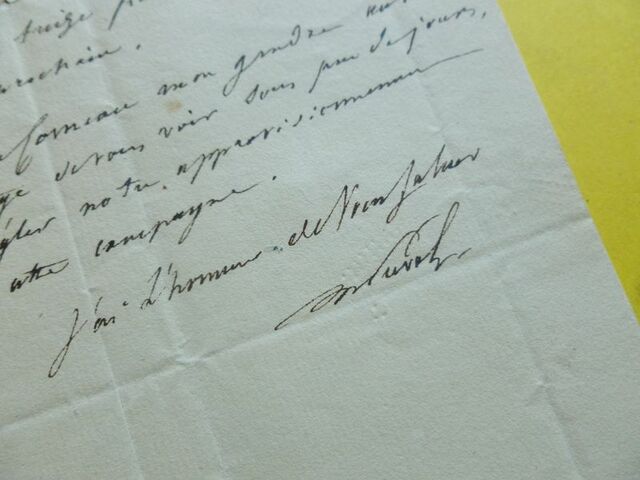 treize
prochain.
Comeau mon gendre
de vous voir sous peu de jours,
régler notre approvisionnement
cette campagne.
J'ai l'honneur de Vous Saluer